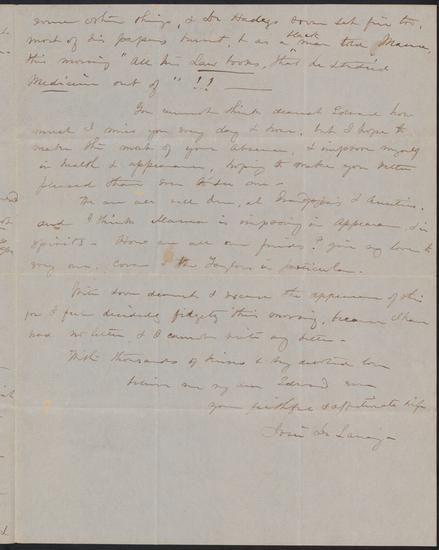 some other things, & Dr Hadleys room set fire too,
most of his papers burnt, & as a black man told Mama,
this morning "All his Law books, that he studied
Medicine out of" !! —
You cannot think dearest Edward how
much I miss you every day & hour, but I hope to
make the most of your absence, & improve myself
in health & appearance, hoping to make you better
pleased than ever to see me —
We are all well here, at Grandpapa's & Aunties,
and I think Mamma is improving in appearance, & in
spirits — How are all our friends? give my love to
every one, the Taylors in particular.
Write soon dearest & excuse the appearance of this
for I feel decidedly fidgety this morning, because I have
had no letter & I cannot write any better —
With thousands of kisses & my devoted love
believe me my own Edward ever
your faithful & affectionate wife